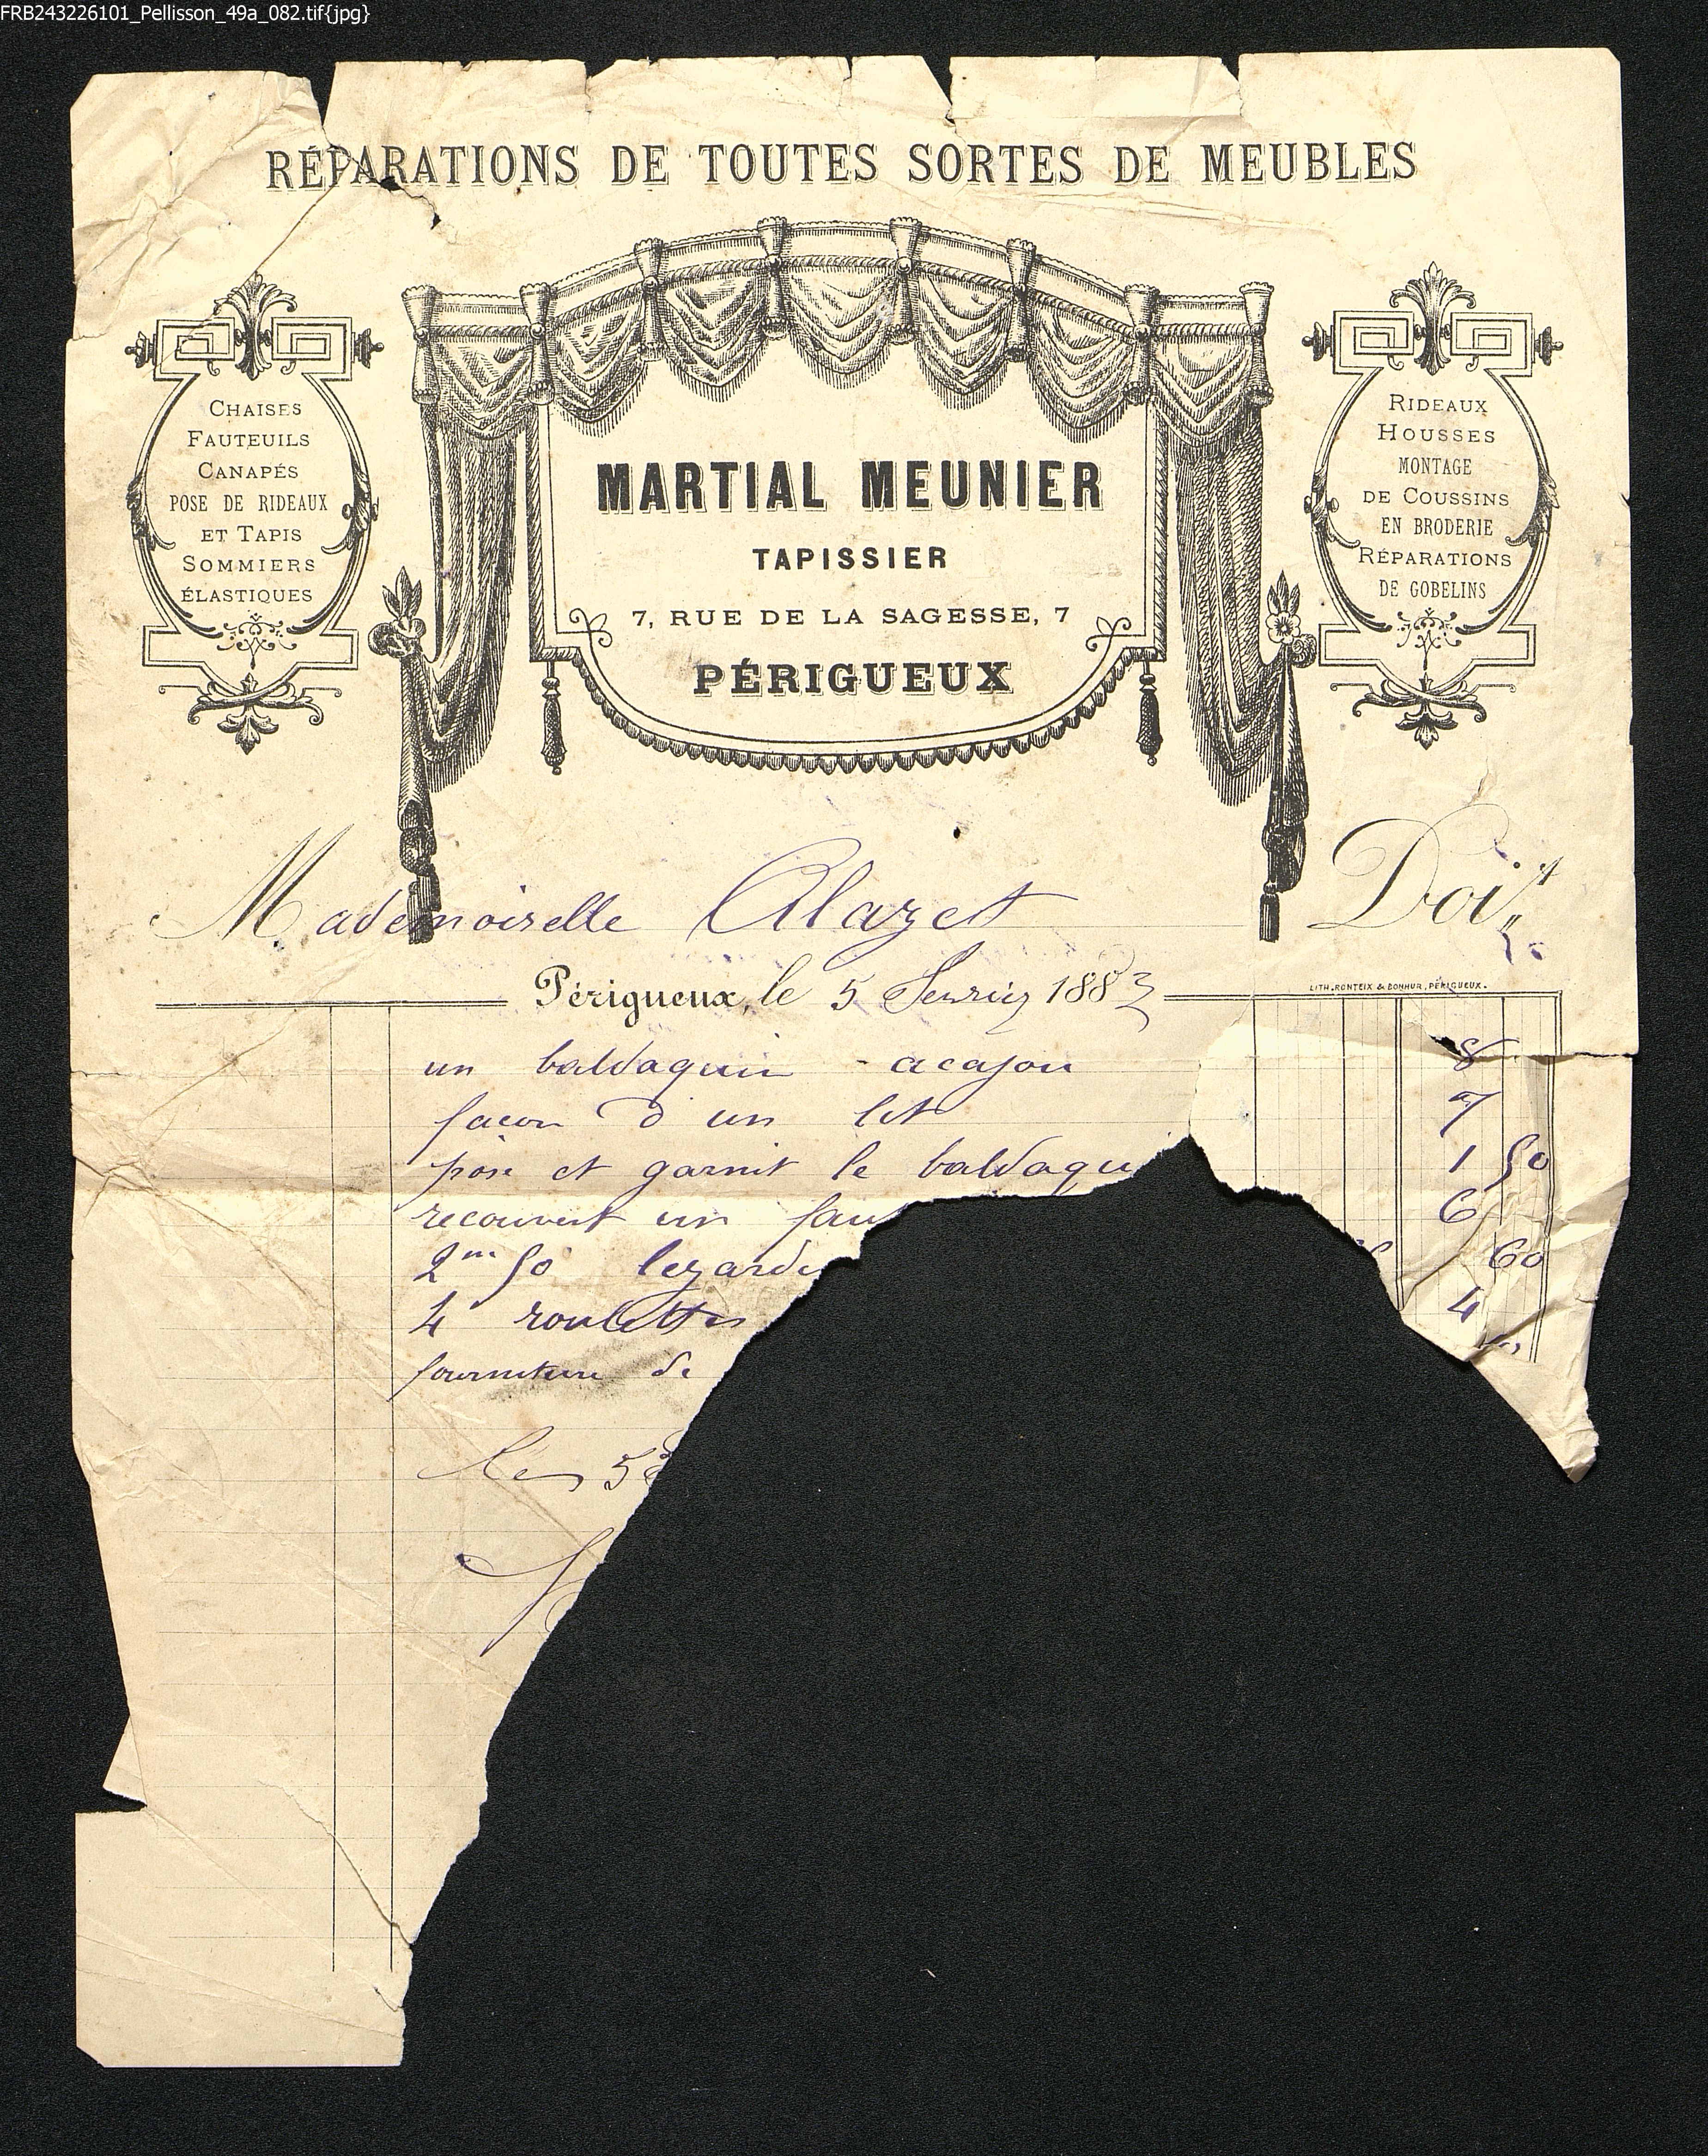 FRB243226101_Pellisson_49a_082.tif{jpg}
RÉPARATIONS DE TOUTES SORTES DE MEUBLES
CHAISES
FAUTEUILS
CANAPÉS
POSE DE RIDEAUX
ET TAPIS
SOMMIERS
ÉLASTIQUES
MARTIAL MEUNIER
TAPISSIER
7, RUE DE LA SAGESSE, 7
PÉRIGUEUX
RIDEAUX
HOUSSES
MONTAGE
DE COUSSINS
EN BRODERIE
RÉPARATIONS
DE GOBELINS
Mademoiselle Alazet Doit
Périgueux, le 5 1883
LITH. RONTEIX & BONHUR, PÉRIGUEUX.
un baldaquin acajou 8
facon d un lit 7
pose et garnit le baldaqu 1 50
recouvert un faut 6
2m 50 lezarde 60
4 roulettes 4
fourniture de